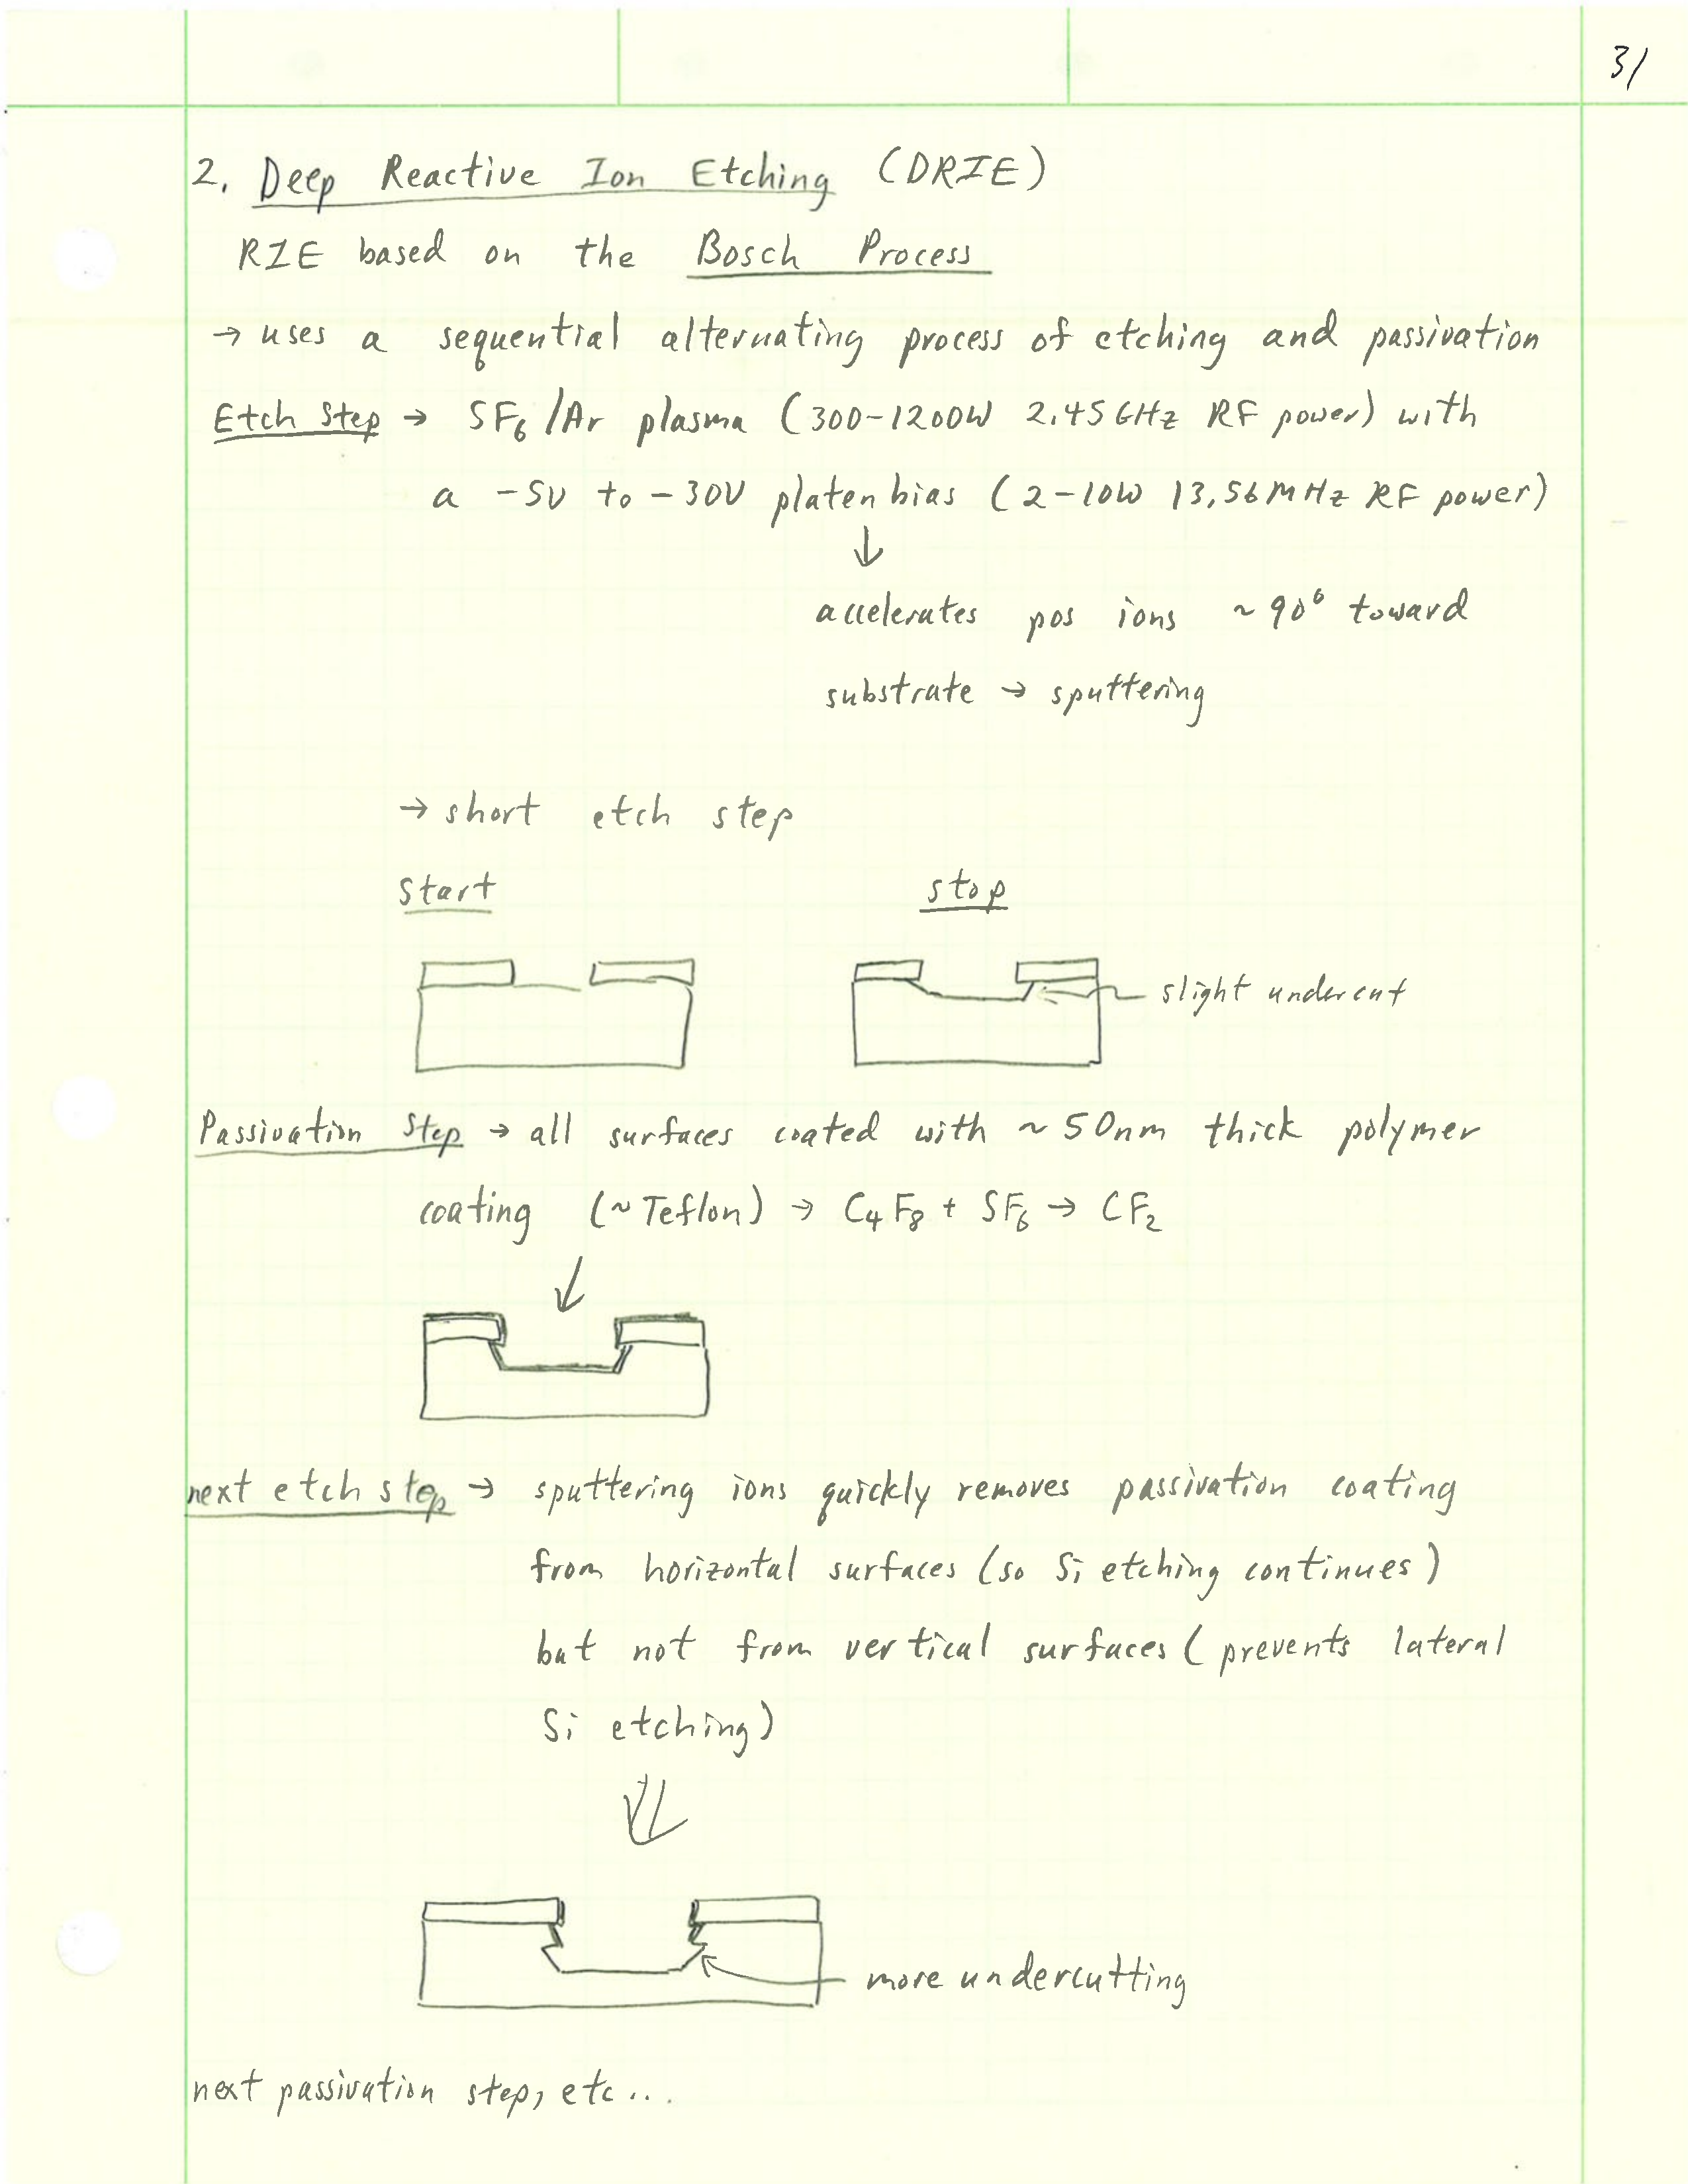 31
2. Deep Reactive Ion Etching (DRIE)
RIE based on the Bosch Process
→ uses a sequential alternating process of etching and passivation
Etch Step → SF₆/Ar plasma (300-1200W 2.45GHz RF power) with
a -5V to -30V platen bias (2-10W 13.56MHz RF power)
↓
accelerates pos ions ~90° toward
substrate → sputtering
→ short etch step
start stop
slight undercut
Passivation Step → all surfaces coated with ~50nm thick polymer
coating (~Teflon) → C₄F₈ + SF₆ → CF₂
next etch step → sputtering ions quickly removes passivation coating
from horizontal surfaces (so Si etching continues)
but not from vertical surfaces (prevents lateral
Si etching)
more undercutting
next passivation step, etc...